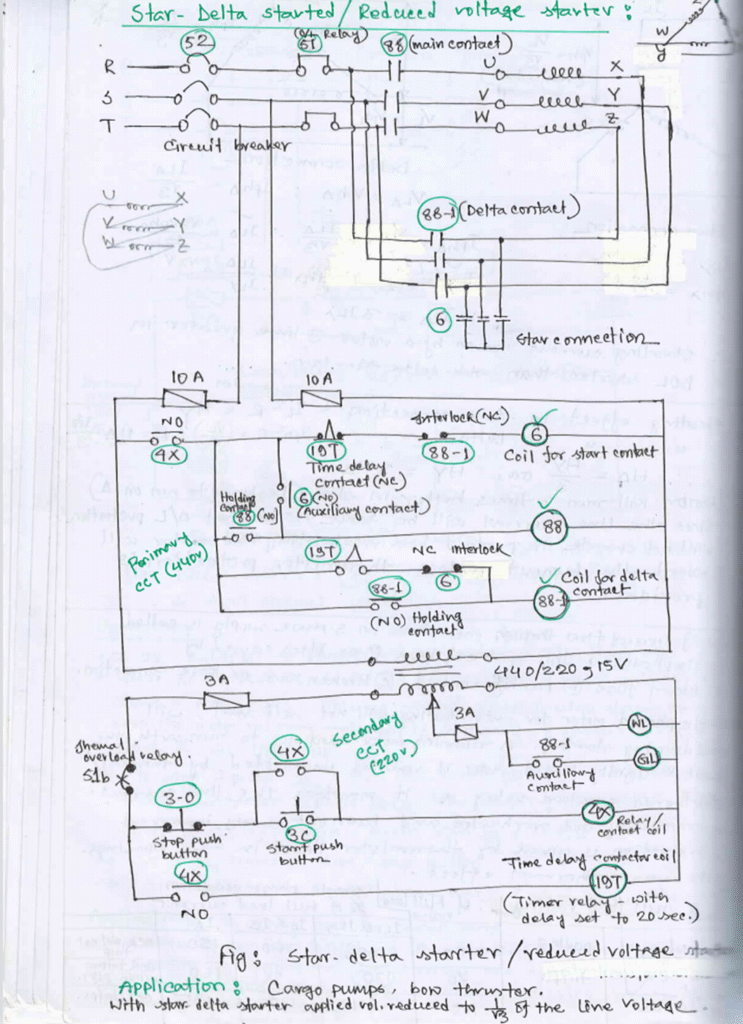 Star-Delta started/Reduced voltage starter:
52
(O/L Relay)
51
88 (main contact)
R
S
T
U
V
W
X
Y
Z
W
y
Circuit breaker
U X
V Y
W Z
88-1 (Delta contact)
6
Star connection
10 A
10 A
NO
4X
19T
Time delay contact (NC)
Interlock (NC)
88-1
6
Coil for start contact
Holding contact
88 (NO)
6 (NO)
(Auxiliary contact)
88
Perimary
CCT (440V)
19T
NC interlock
6
88-1
(NO) Holding contact
Coil for delta contact
88-1
440/220 , 15V
3A
3A
Secondary
CCT
(220V)
NL
GL
88-1
Auxiliary contact
Thermal
overload relay
51b
3-0
Stop push button
4X
3C
Start push button
4X
NO
4X
Relay/
contact coil
Time delay contactor coil
19T
(Timer relay with
delay set to 20 sec.)
Fig: Star-delta starter/reduced voltage starter
Application: Cargo pumps, bow thruster.
With star delta starter applied vol. reduced to 1/√3 of the line voltage.